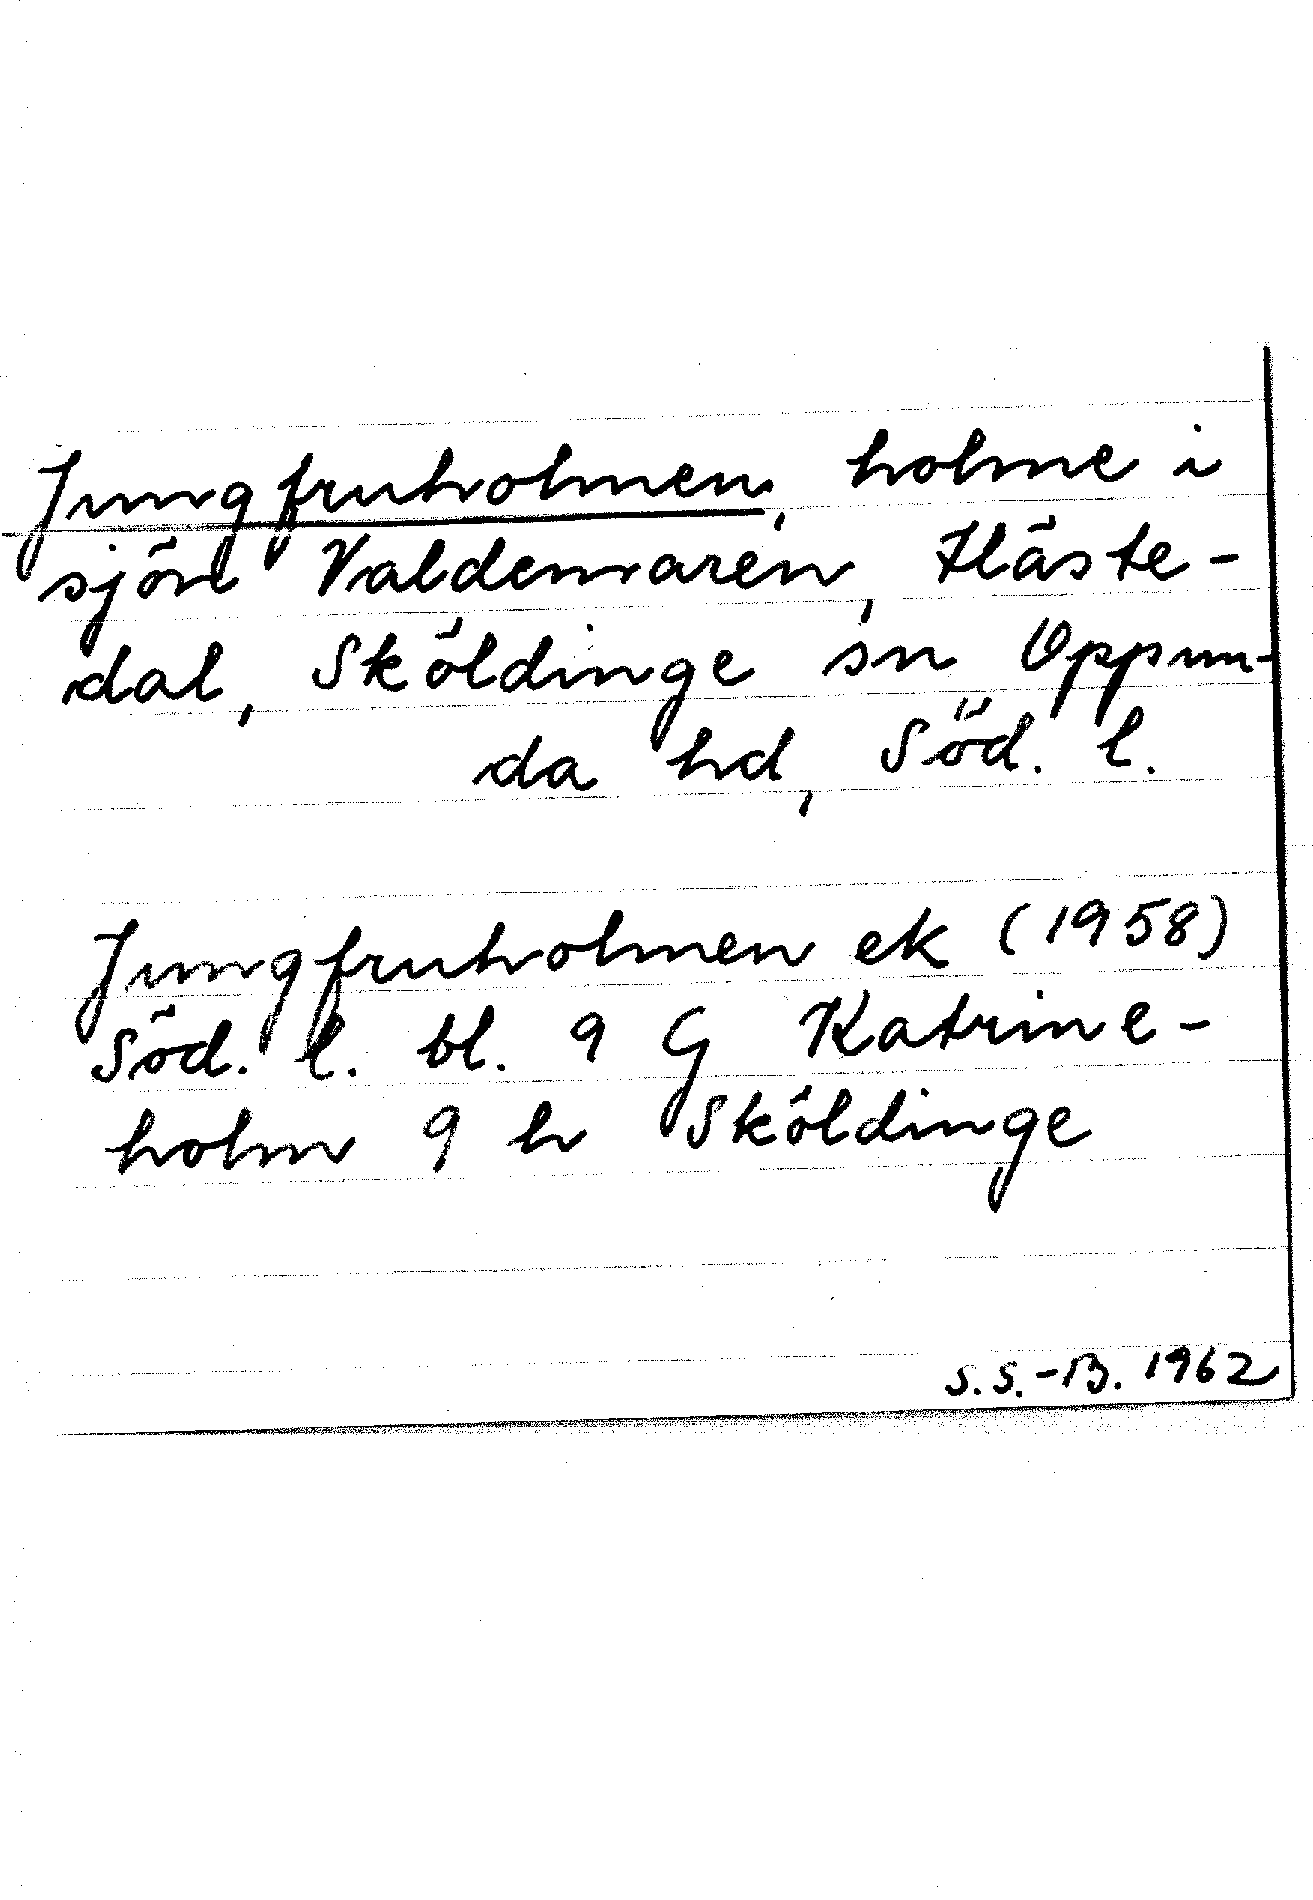 Jungfruholmen, holme i
sjön Valdemaren, Häste-
dal, Sköldinge sn Oppun-
da hd, Söd. l.
Jungfruholmen ek (1958)
Söd. l. bl. 9 G Katrine-
holm 9 h Sköldinge
S.S.-B. 1962